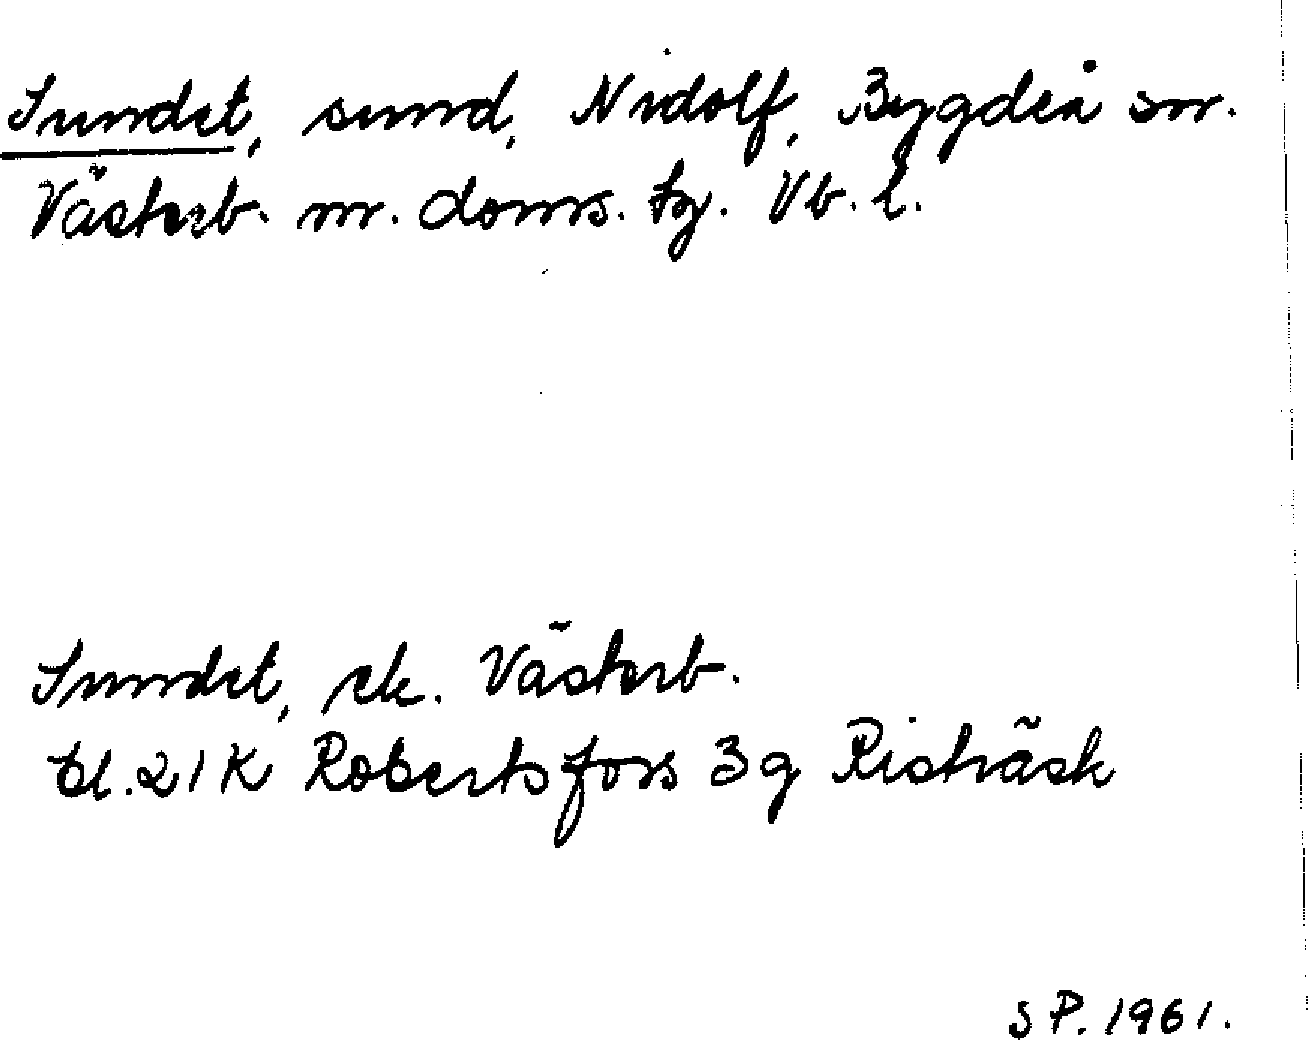 Sundet, sund, Nidolf, Bygdeå sn.
Västerb. m. doms. tg. Vb. l.
Sundet, ek. Västerb.
bl. 21K Robertsfors 3g Risträsk
S P. 1961.